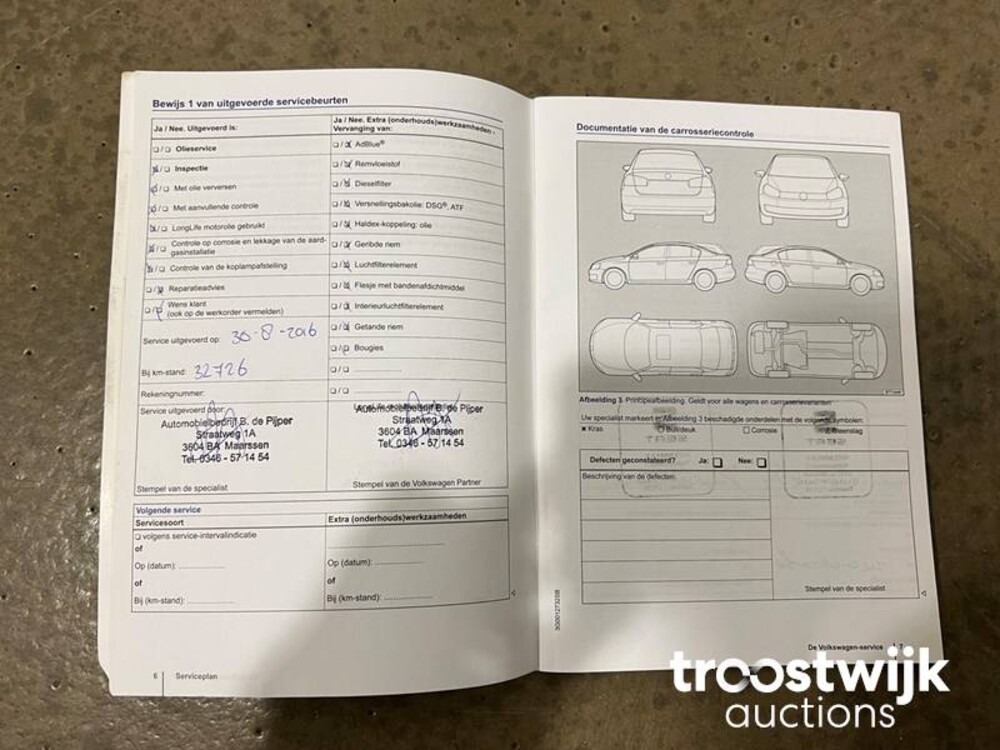 Bewijs 1 van uitgevoerde servicebeurten
Ja / Nee. Uitgevoerd is:
Ja / Nee. Extra (onderhouds)werkzaamheden -
Vervanging van:
Olieservice
AdBlue®
Inspectie
Remvloeistof
Met olie verversen
Dieselfilter
Met aanvullende controle
Versnellingsbakolie: DSG®, ATF
LongLife motorolie gebruikt
Haldex-koppeling: olie
Controle op corrosie en lekkage van de aard-
gasinstallatie
Geribde riem
Controle van de koplampafstelling
Luchtfilterelement
Reparatieadvies
Flesje met bandenafdichtmiddel
Wens klant
(ook op de werkorder vermelden)
Interieurluchtfilterelement
Getande riem
Service uitgevoerd op: 30-8-2016
Bougies
Bij km-stand: 32726
Rekeningnummer:
Service uitgevoerd door:
Automobielbedrijf B. de Pijper
Straatweg 1A
3604 BA Maarssen
Tel. 0346 - 57 14 54
Stempel van de specialist
Automobielbedrijf B. de Pijper
Straatweg 1A
3604 BA Maarssen
Tel. 0346 - 57 14 54
Stempel van de Volkswagen Partner
Volgende service
Servicesoort
Extra (onderhouds)werkzaamheden
volgens service-intervalindicatie
of
Op (datum):
Op (datum):
of
of
Bij (km-stand):
Bij (km-stand):
6
Serviceplan
Documentatie van de carrosseriecontrole
Afbeelding 3 Principeafbeelding. Geldt voor alle wagens en carrosserievarianten.
Uw specialist markeert in Afbeelding 3 beschadigde onderdelen met de volgende symbolen:
Kras
Buil/deuk
Corrosie
Steenslag
Defecten geconstateerd? Ja: Nee:
Beschrijving van de defecten:
Stempel van de specialist
De Volkswagen-service
7
troostwijk
auctions